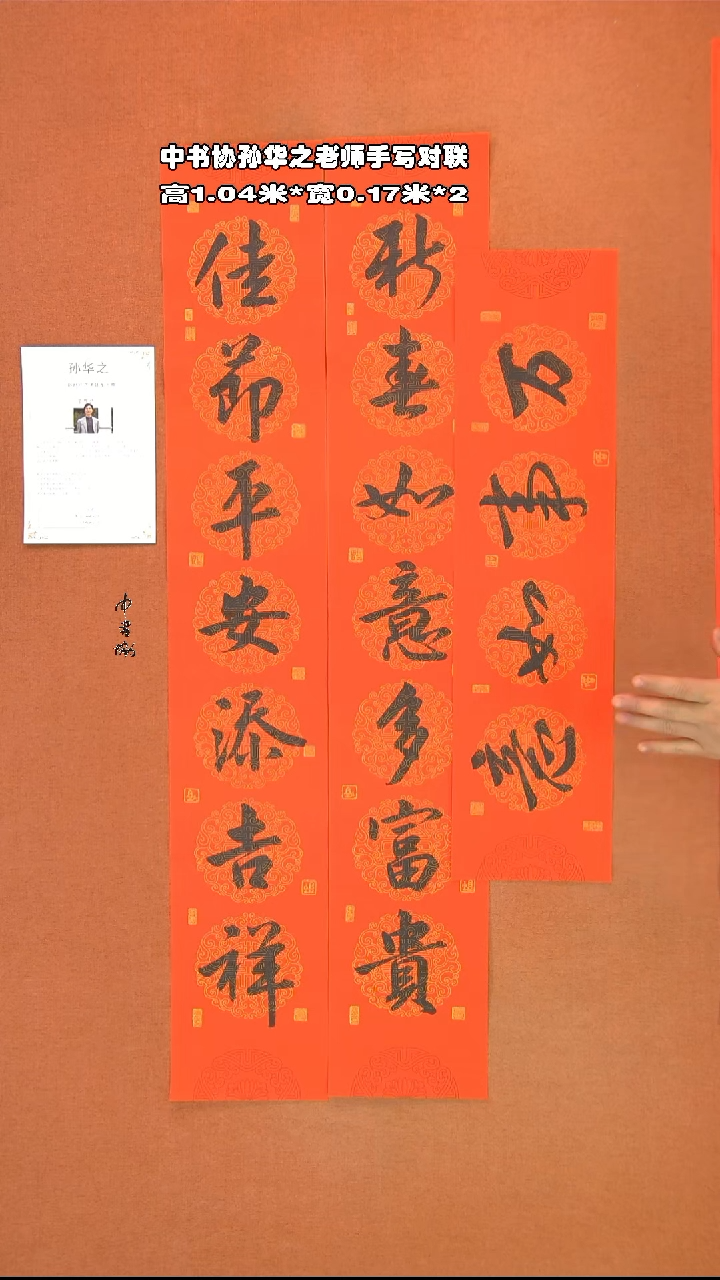 中书协孙华之老师手写对联
高1.04米*宽0.17米*2
新春如意多富貴
佳節平安添吉祥
万事如意
孙华之